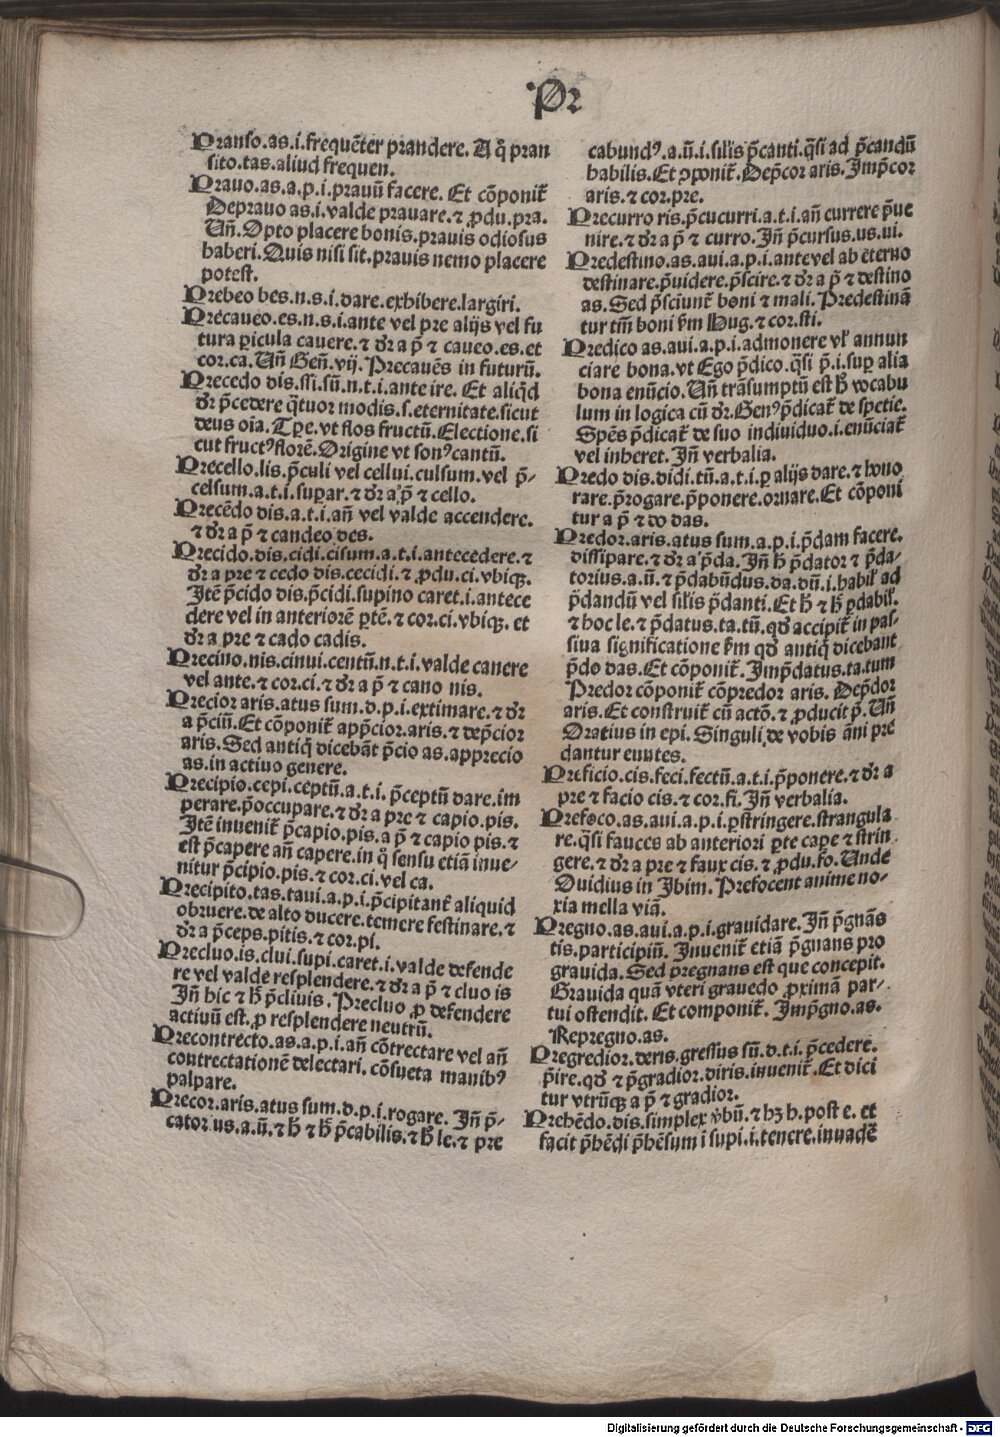 Pr
Pranso.as.i.frequẽter prandere. A q̃ pran
sito.tas.aliud frequen.
Prauo.as.a.p.i.prauũ facere. Et cõponit̃
Deprauo as.i.valde prauare.⁊ ꝓdu.pra.
Uñ. Opto placere bonis.prauis odiosus
haberi.Quis nisi sit.prauis nemo placere
potest.
Prebeo bes.n.s.i.dare.exhibere.largiri.
Precaueo.es.n.s.i.ante vel pre alijs vel fu
tura ꝑicula cauere.⁊ dr̃ a p̃ ⁊ caueo.es.et
cor.ca.Uñ Geñ.vij. Precauẽs in futurũ.
Precedo dis.ssi.sũ.n.t.i.ante ire. Et aliq̃d
dr̃ p̃cedere q̃tuor modis.s.eternitate.sicut
deus oĩa. Tꝑe.vt flos fructũ.Electione.si
cut fructꝰ florẽ.Origine vt sonꝰ cantũ.
Precello.lis.p̃culi vel cellui.culsum.vel p̃-
celsum.a.t.i.suꝑar.⁊ dr̃ a p̃ ⁊ cello.
Precẽdo dis.a.t.i.añ vel valde accendere.
⁊ dr̃ a p̃ ⁊ candeo des.
Precido.dis.cidi.cisum.a.t.i.antecedere.⁊
dr̃ a pre ⁊ cedo dis.cecidi.⁊ ꝓdu.ci.vbiqꝫ.
Jtẽ p̃cido dis.p̃cidi.supino caret.i.antece
dere vel in anteriorẽ ꝑtẽ.⁊ cor.ci.vbiqꝫ. et
dr̃ a pre ⁊ cado cadis.
Precino.nis.cinui.centũ.n.t.i.valde canere
vel ante.⁊ cor.ci.⁊ dr̃ a p̃ ⁊ cano nis.
Precior aris.atus sum.d.p.i.extimare.⁊ dr̃
a p̃ciũ.Et cõponit̃ app̃cior.aris.⁊ dep̃cior
aris.Sed antiq̃ dicebãt p̃cio as.apprecio
as.in actiuo genere.
Precipio.cepi.ceptũ.a.t.i. p̃ceptũ dare.im
perare.p̃occupare.⁊ dr̃ a pre ⁊ capio.pis.
Jtẽ inuenit̃ p̃capio.pis.a p̃ ⁊ capio pis.⁊
est p̃capere añ capere.in q̃ sensu etiã inue-
nitur p̃cipio.pis.⁊ cor.ci.vel ca.
Precipito.tas.taui.a.p.i.p̃cipitant̃ aliquid
obruere.de alto ducere.temere festinare.⁊
dr̃ a p̃ceps.pitis.⁊ cor.pi.
Precluo.is.clui.supi.caret.i.valde defende
re vel valde resplendere.⁊ dr̃ a p̃ ⁊ cluo is
Jñ hic ⁊ h̃ p̃cliuis. Precluo ꝓ defendere
actiuũ est.ꝓ resplendere neutrũ.
Precontrecto.as.a.p.i.añ cõtrectare vel añ
contrectationẽ delectari.cõsueta manibꝰ
palpare.
Precor.aris.atus sum.d.p.i.rogare. Jñ p̃-
cator us.a.ũ.⁊ h̃ ⁊ h̃ p̃cabilis.⁊ h̃ le.⁊ pre
cabundꝰ.a.ũ.i.silis p̃canti.q̃si ad p̃candũ
habilis.Et ꝓponit̃.Dep̃cor aris.Jmp̃cor
aris.⁊ cor.pre.
Precurro ris.p̃cucurri.a.t.i.añ currere p̃ue
nire.⁊ dr̃ a p̃ ⁊ curro.Jñ p̃cursus.us.ui.
Predestino.as.aui.a.p.i.antevel ab eterno
destinare.p̃uidere.p̃scire.⁊ dr̃ a p̃ ⁊ destino
as. Sed p̃sciunt̃ boni ⁊ mali. Predestinã
tur tm̃ boni ẜm Hug.⁊ cor.sti.
Predico as.aui.a.p.i.admonere vl̕ annun
ciare bona.vt Ego p̃dico.q̃si p̃.i.suꝑ alia
bona enũcio.Uñ trãsumptũ est h̃ vocabu
lum in logica cũ dr̃.Genꝰ p̃dicat̃ de spetie.
Spẽs p̃dicat̃ de suo indiuiduo.i.enũciat̃
vel inheret. Jñ verbalia.
Predo dis.didi.tũ.a.t.i.ꝑ alijs dare.⁊ hono
rare.p̃rogare.p̃ponere.ornare.Et cõponi
tur a p̃ ⁊ do das.
Predor.aris.atus sum.a.p.i.p̃dam facere.
dissipare.⁊ dr̃ a p̃da. Jñ h̃ p̃dator ⁊ p̃da-
torius.a.ũ.⁊ p̃dabũdus.da.dũ.i.habil̕ ad
p̃dandũ vel silis p̃danti.Et h̃ ⁊ h̃ p̃dabil̕.
⁊ hoc le.⁊ p̃datus.ta.tũ.qđ accipit̃ in pas-
siua significatione ẜm qđ antiq̃ dicebant
p̃do das.Et cõponit̃. Jmp̃datus.ta.tum
Predor cõponit̃ cõpredor aris. Dep̃dor
aris.Et construit̃ cũ actõ.⁊ ꝓducit p̃.Uñ
Oratius in epi. Singuli de vobis ãni pre
dantur euntes.
Preficio.cis.feci.fectũ.a.t.i.p̃ponere.⁊ dr̃ a
pre ⁊ facio cis.⁊ cor.fi. Jñ verbalia.
Prefoco.as.aui.a.p.i.ꝑstringere.strangula
re.q̃si fauces ab anteriori ꝑte caꝑe ⁊ strin
gere.⁊ dr̃ a pre ⁊ faux cis.⁊ ꝓdu.fo.Unde
Ouidius in Jbim. Prefocent anime no-
xia mella viã.
Pregno.as.aui.a.p.i.grauidare. Jñ p̃gnãs
tis.participiũ. Jnuenit̃ etiã p̃gnans pro
grauida. Sed pregnans est que concepit.
Grauida quã vteri grauedo ꝓximã par-
tui ostendit. Et componit̃. Jmp̃gno.as.
Repregno.as.
Pregredior.deris.gressus sũ.d.t.i.p̃cedere.
p̃ire.qđ ⁊ p̃gradior.diris.inuenit̃.Et dici
tur vtrũqꝫ a p̃ ⁊ gradior.
Prehẽdo.dis.simplex v̓bũ.⁊ hꝫ h.post e. et
facit p̃hẽdi p̃hẽsum i supi.i.tenere.inuadẽ
Digitalisierung gefördert durch die Deutsche Forschungsgemeinschaft - DFG